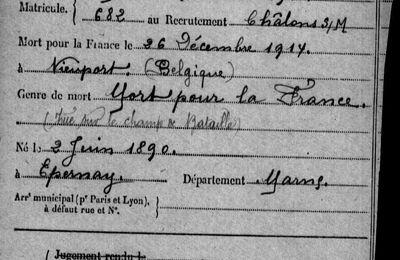 Matricule. 682 au Recrutement Châlons S/M
Mort pour la France le 26 Décembre 1914.
à Nieuport. (Belgique)
Genre de mort Mort pour la France.
(tué sur le champ de Bataille)
Né le 2 Juin 1890.
à Epernay. Département Marne.
Arrt municipal (pr Paris et Lyon),
à défaut rue et N°.
Jugement rendu le